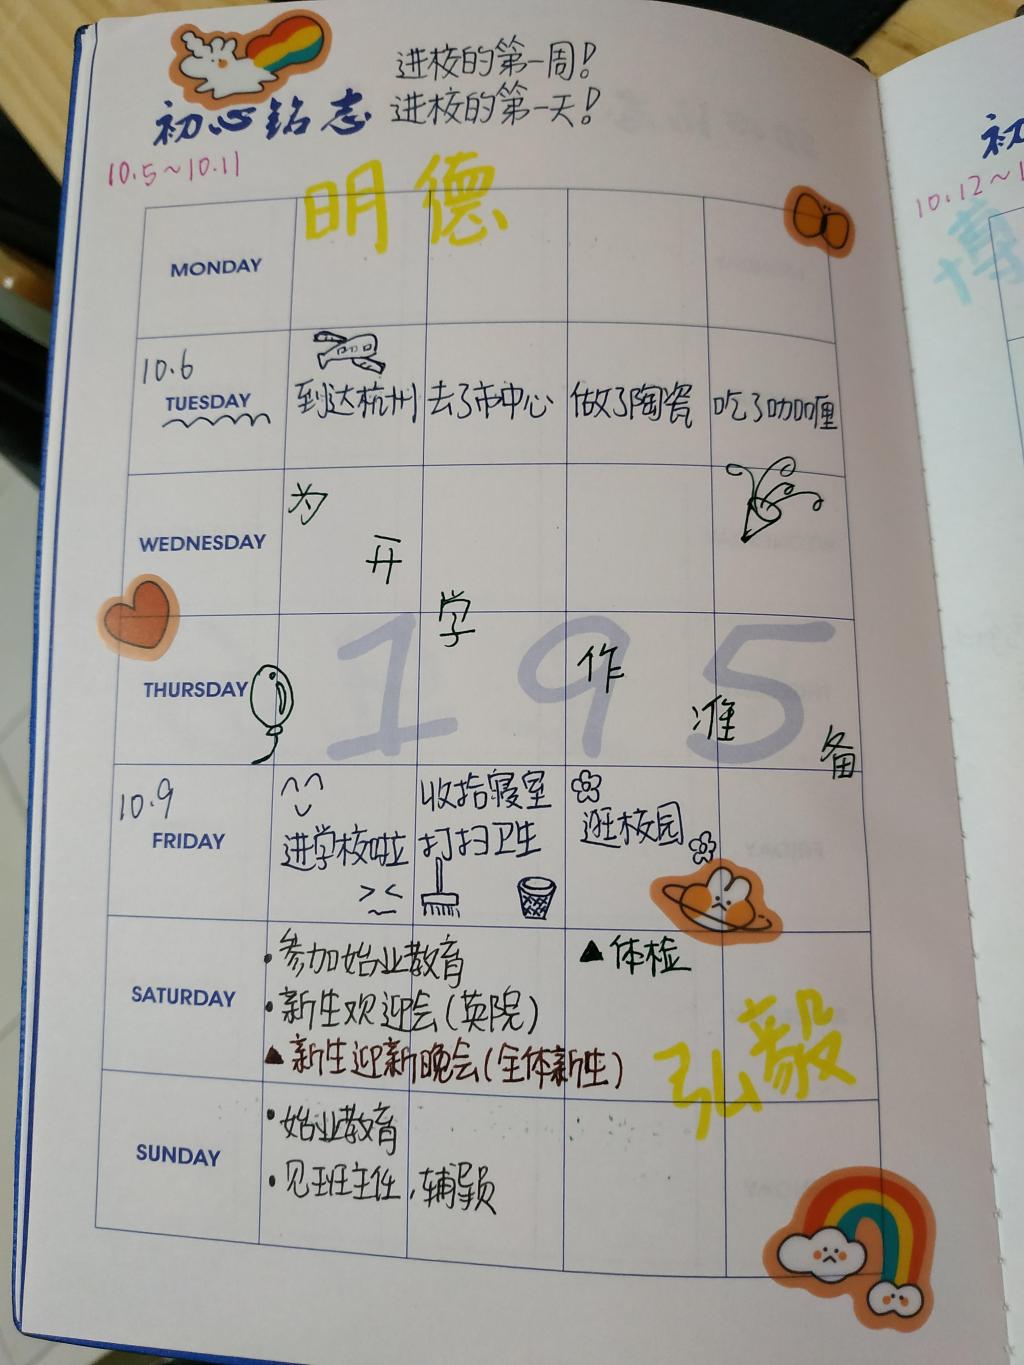 进校的第一周!
初心铭志
进校的第一天!
10.5~10.11
明德
MONDAY
10.6
TUESDAY
到达杭州
去了市中心
做了陶瓷
吃了咖喱
WEDNESDAY
为开学作准备
THURSDAY
195
10.9
FRIDAY
进学校啦
收拾寝室
打扫卫生
逛校园
SATURDAY
·参加始业教育
·新生欢迎会(英院)
▲新生迎新晚会(全体新生)
▲体检
弘毅
SUNDAY
·始业教育
·见班主任,辅导员
初
10.12~1
博